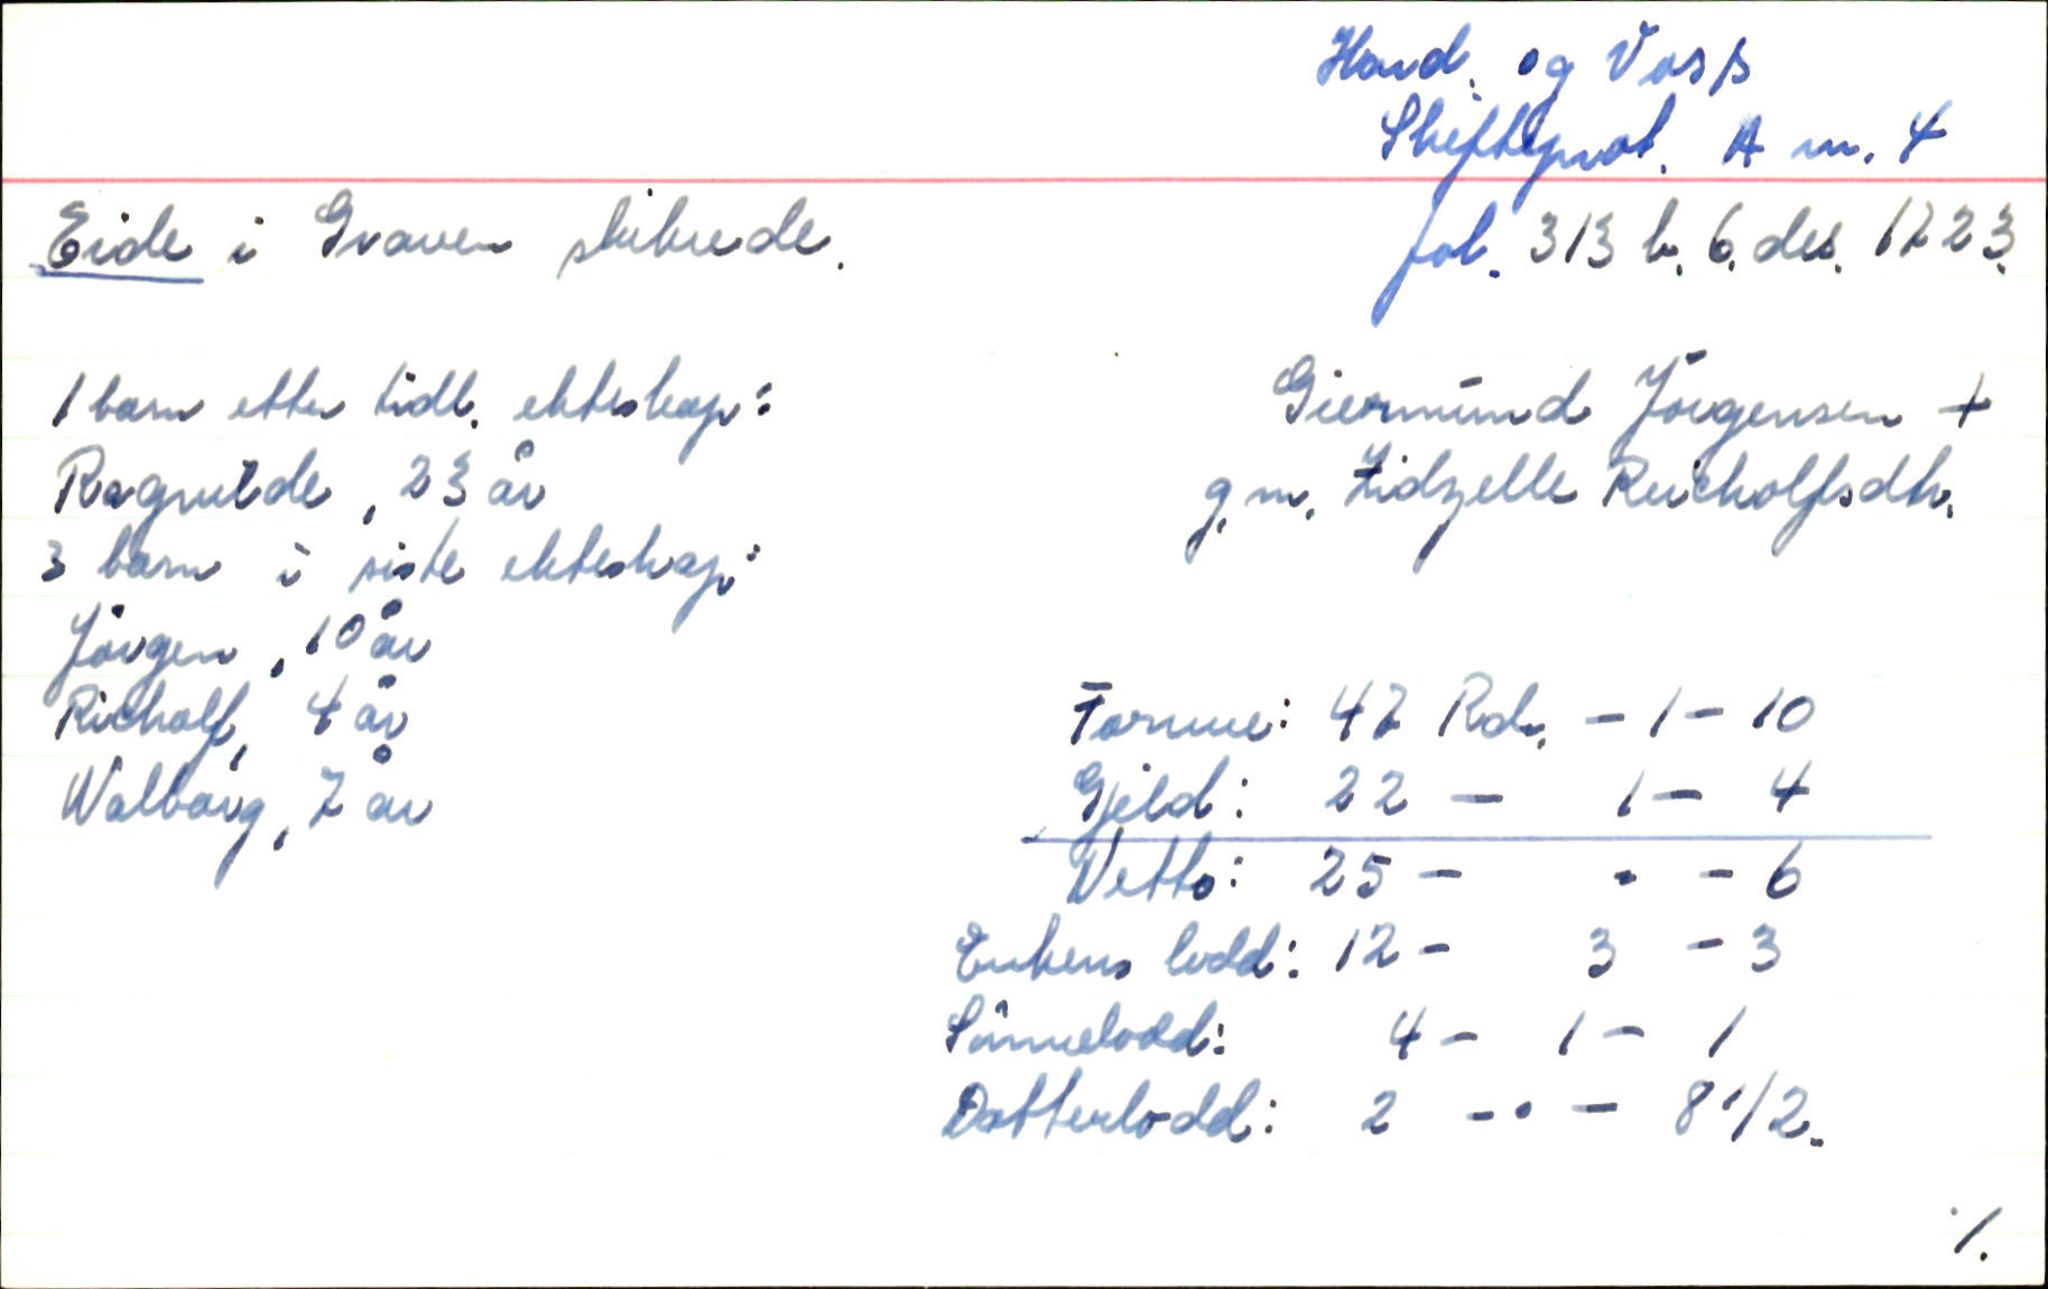 Hard. og Voss
Skifteprot. A nr. 4
Eide i Graven skibrede.
fol. 313 b. 6. des. 1723.
1 barn etter tidl. ekteskap:
Ragnilde, 23 år
3 barn i siste ekteskap:
Jörgen, 10 år
Richolf, 4 år
Walborg, 7 år
Giermund Jörgensen +
g.m. Zidzelle Reicholfsdtr.
Formue: 47 Rdr. - 1 - 10
Gjeld: 22 - 1 - 4
Netto: 25 - • - 6
Enkens lodd: 12 - 3 - 3
Sönnelodd: 4 - 1 - 1
Datterlodd: 2 - • - 8 1/2.
./.